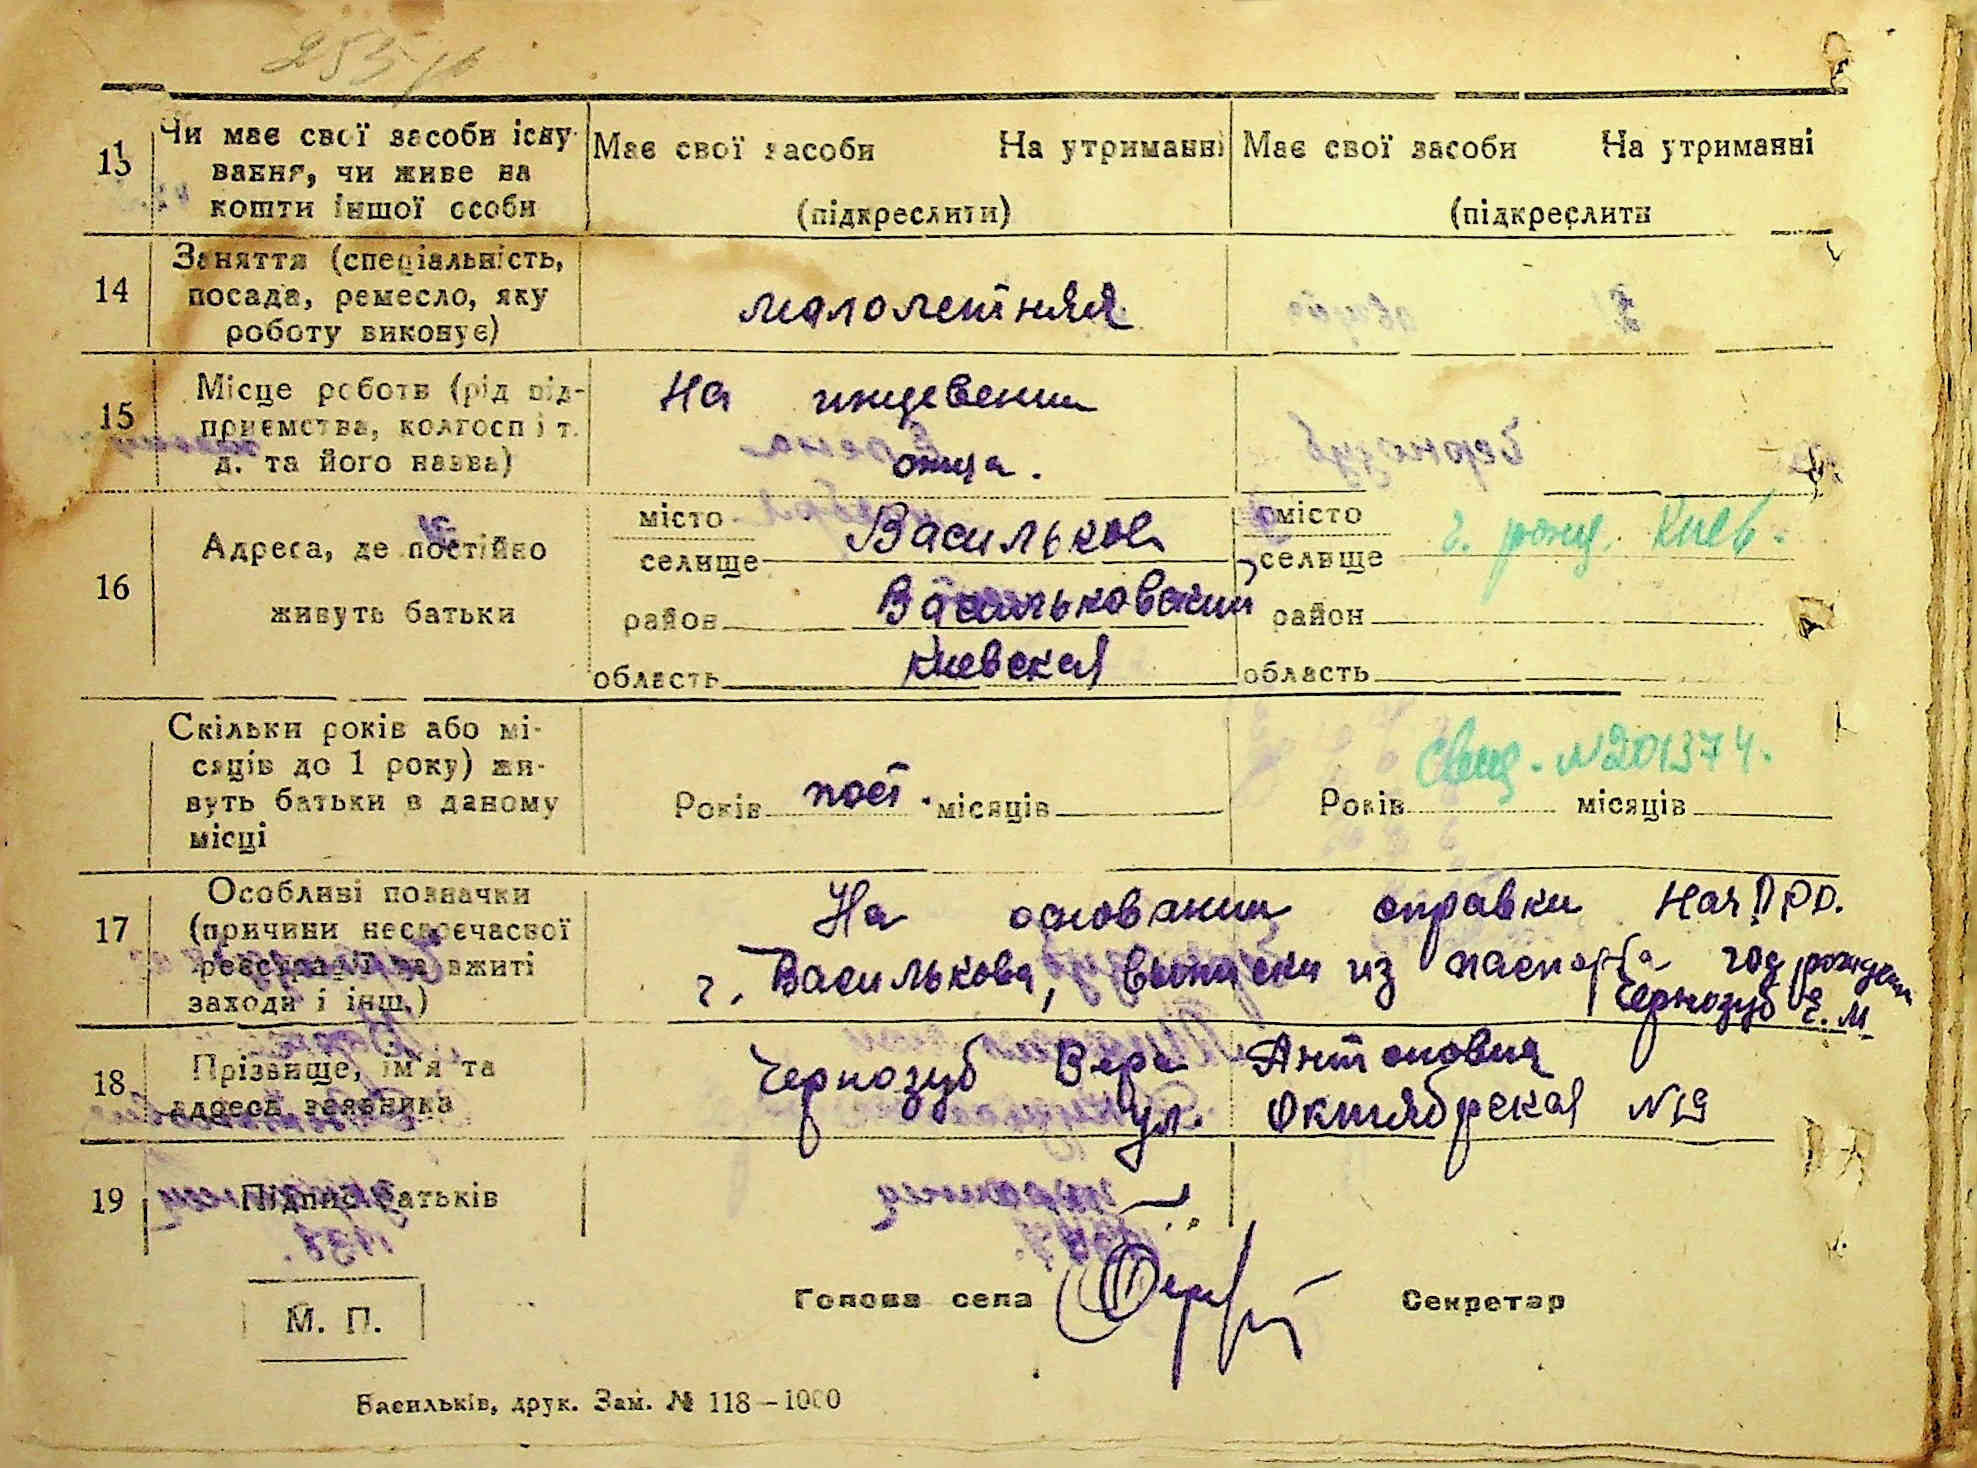 13 Чи має свої засоби існу-
вання, чи живе на
кошти іншої особи
Має свої засоби На утриманні
(підкреслити)
Має свої засоби На утриманні
(підкреслити
14 Заняття (спеціальність,
посада, ремесло, яку
роботу виконує)
малолетняя
15 Місце роботи (рід під-
приємства, колгосп і т.
д. та його назва)
На иждевении
отца.
16 Адреса, де постійно
живуть батьки
місто
селище Васильков
район Васильковский
область Киевская
місто
селище г. рожд. Киев.
район
область
Скільки років або мі-
сяців до 1 року) жи-
вуть батьки в даному
місці
Років пост. місяців
Свид. №201374.
Років місяців
17 Особливі позначки
(причини несвоєчасної
реєстрації та вжиті
заходи і інш.)
На основании справки Нач. РО.
г. Василькова, выписки из паспорта год рожден
Чернозуб Е. М.
18 Прізвище, ім'я та
адреса заявника
Чернозуб Вера Антоновна
ул. Октябрская №19
19 Підпис батьків
М. П.
Голова села Секретар
Васильків, друк. Зам. № 118–1000